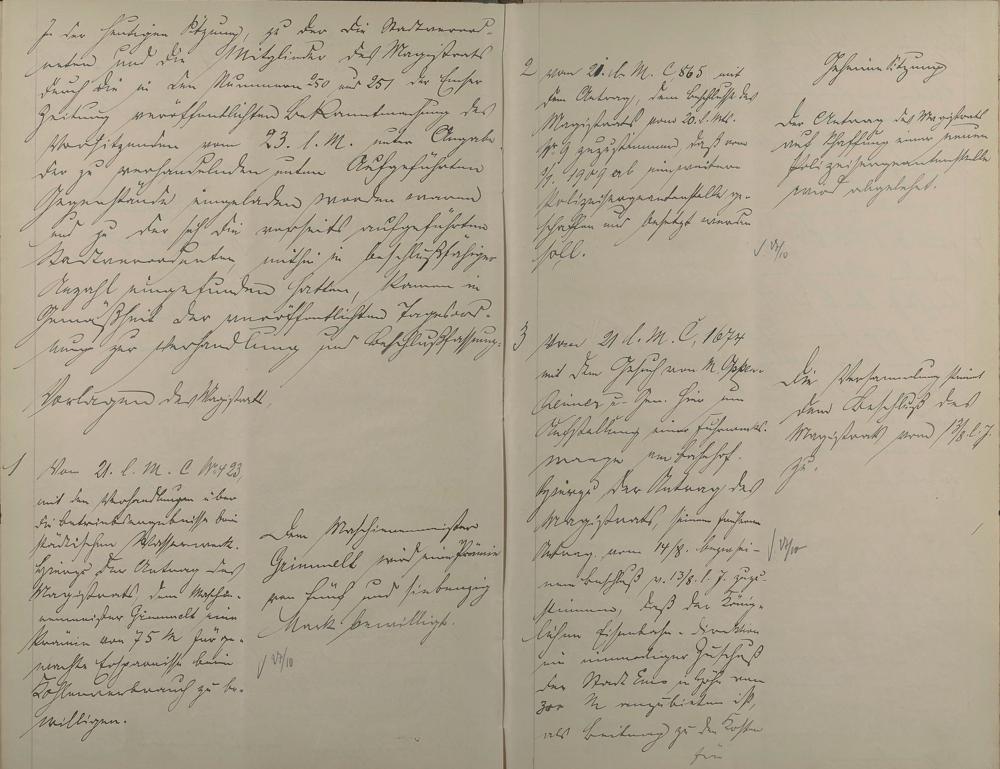 In der heutigen Sitzung, zu der die Stadtverord-
neten und die Mitglieder des Magistrats
durch die in den Nummern 250 und 251 der Emser
Zeitung veröffentlichten Bekanntmachung des
Vorsitzenden vom 23. l. M. unter Angabe
der zu verhandelnden unten Aufgeführten
Gegenstände eingeladen worden waren
und zu der sich die vorseits aufgeführten
Stadtverordneten, mithin in beschlußfähiger
Anzahl eingefunden hatten, kamen in
Gemäßheit der veröffentlichten Tagesord-
nung zur Verhandlung und Beschlußfassung:
Vorlagen des Magistrats,
1 Vom 21. l. M. C. No 423,
mit den Verhandlungen über
die Betriebsergebnisse beim
städtischen Wasserwerk.
Hierzu der Antrag des
Magistrats, dem Maschi-
nenmeister Grimmelt eine
Prämie von 75 M für ge-
machte Ersparnisse beim
Kohlenverbrauch zu be-
willigen.
Dem Maschienenmeister
Grimmelt wird eine Prämie
von fünf und siebenzig
Mark bewilligt.
2 vom 21. d. M. C 865 mit
dem Antrag, dem Beschlusse des
Magistrats vom 20. l. Mts.
No. 9 zuzustimmen, daß vom
1/1. 1909 ab ein weitere
Polizeisergeantenstelle ge-
schaffen und besetzt werden
soll.
Geheime Sitzung
Der Antrag des Magistrats
auf Schaffung einer neuen
Polizeisergeantenstelle
wird abgelehnt.
3 Vom 21. l. M. C. 1674
mit dem Gesuch von M. Oppen-
heimer u. Gen. hier um
Aufstellung einer Fuhrwerks-
waage am Bahnhof.
Hierzu der Antrag des
Magistrats, seinem früheren
Antrag vom 14/8. bezw. sei-
nem Beschluß v. 13/8. l. J. zuzu-
stimmen, daß der König-
lichen Eisenbahn-Direktion
ein einmaliger Zuschuß
der Stadt Ems in Höhe von
300 M anzubieten ist,
als Beitrag zu den Kosten
für
Die Versammlung stimmt
dem Beschluß des
Magistrats vom 13/8. l. J.
zu.